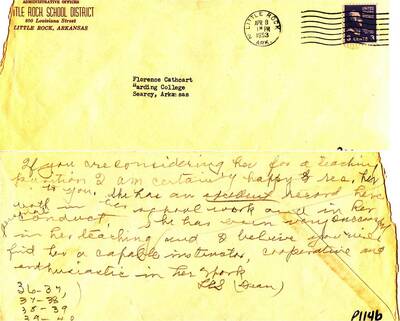 ADMINISTRATIVE OFFICES
LITTLE ROCK SCHOOL DISTRICT
800 Louisiana Street
LITTLE ROCK, ARKANSAS
LITTLE ROCK
APR 8
1 PM
1953
ARK.
Florence Cathcart
Harding College
Searcy, Arkansas
If you are considering her for a teaching
position I am certainly happy to rec. her
to you. She has an excellent record here
both in her school work and in her
personal conduct. She has been very successful
in her teaching and I believe you will
find her a capable instructor, cooperative and
enthusiastic in her work
LCS (Dean)
36-37,
37-38
38-39
39-40
P1146